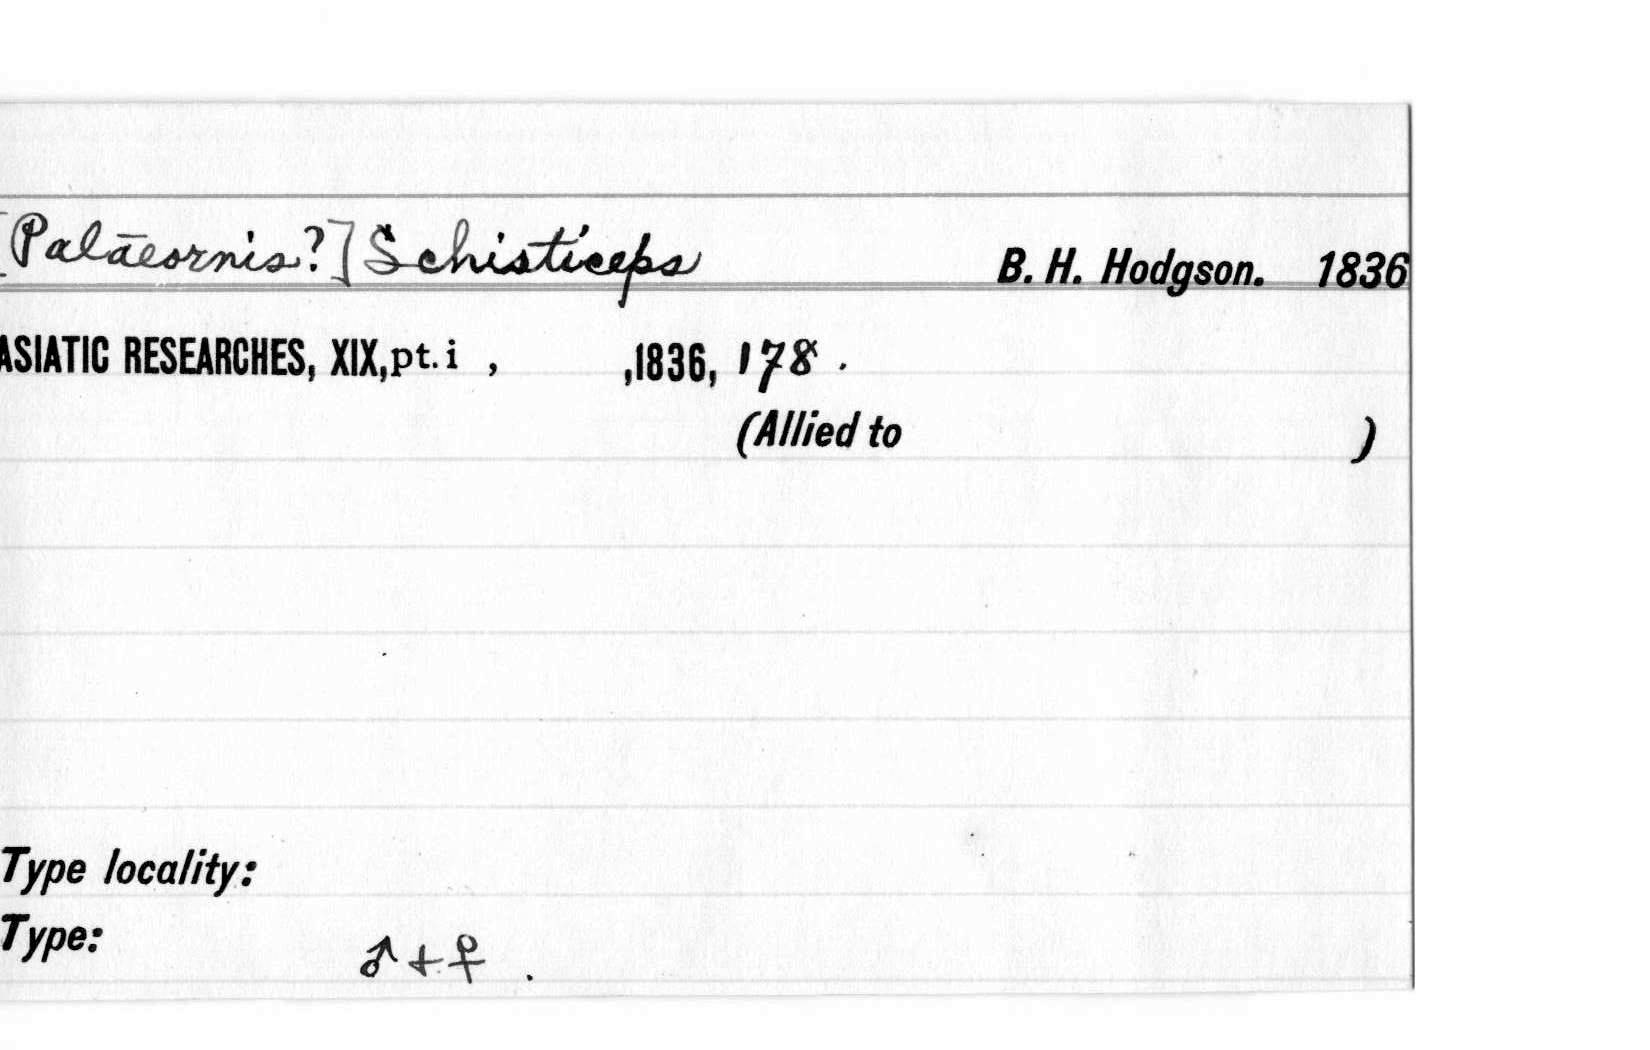 [Palāeornis?] Schisticeps B. H. Hodgson. 1836
ASIATIC RESEARCHES, XIX, pt. i , ,1836, 178 .
(Allied to )
Type locality:
Type: ♂ + ♀ .